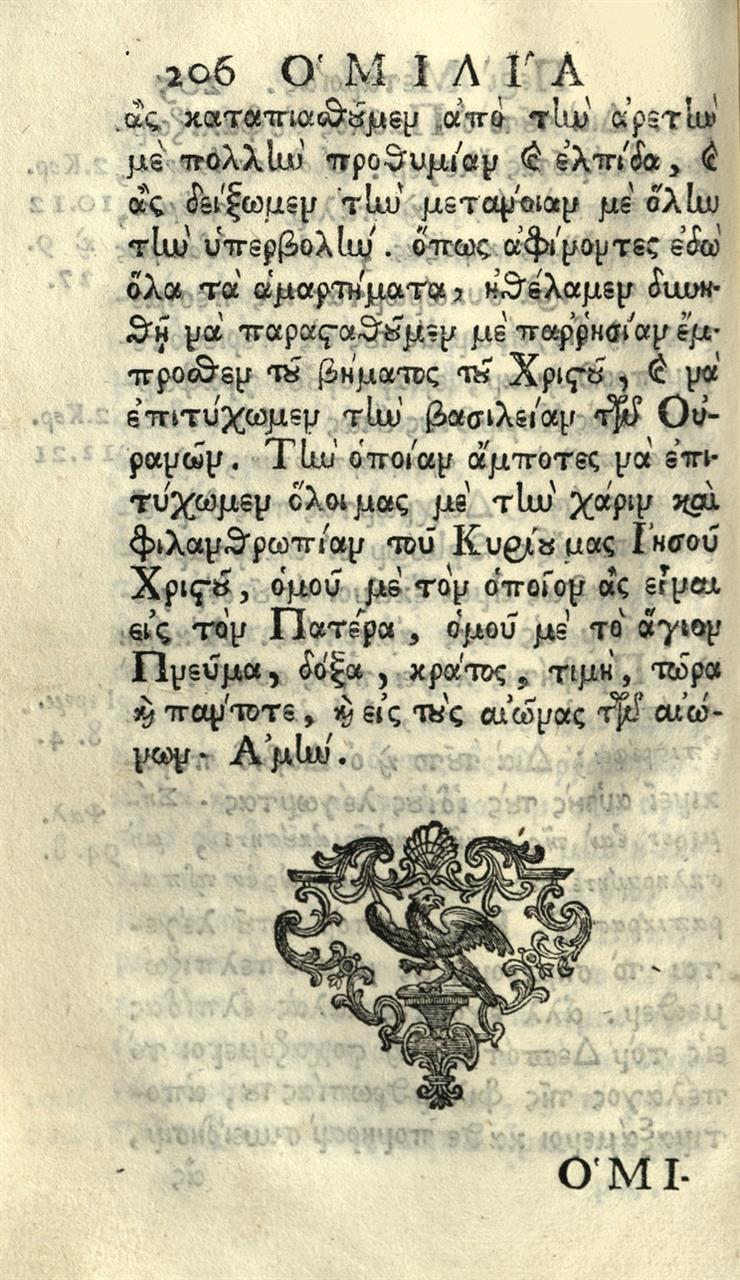 206 ὉΜΙΛΊΑ
ἂς καταπιαθοῦμεν ἀπὸ τὴν ἀρετὴν
μὲ πολλὴν προθυμίαν καὶ ἐλπίδα, καὶ
ἂς δείξωμεν τὴν μετάνοιαν μὲ ὅλην
τὴν ὑπερβολήν. ὅπως ἀφίνοντες ἐδῶ
ὅλα τὰ ἁμαρτήματα, ἠθέλαμεν δυνη-
θῆ νὰ παρασταθοῦμεν μὲ παῤῥησίαν ἔμ-
προσθεν τοῦ βήματος τοῦ Χριστοῦ, καὶ νὰ
ἐπιτύχωμεν τὴν βασιλείαν τῶν Οὐ-
ρανῶν. Τὴν ὁποίαν ἄμποτες νὰ ἐπι-
τύχωμεν ὅλοι μας μὲ τὴν χάριν καὶ
φιλανθρωπίαν τοῦ Κυρίου μας Ιησοῦ
Χριστοῦ, ὁμοῦ μὲ τὸν ὁποῖον ἂς εἶναι
εἰς τὸν Πατέρα, ὁμοῦ μὲ τὸ ἅγιον
Πνεῦμα, δόξα, κράτος, τιμὴ, τῶρα
καὶ πάντοτε, καὶ εἰς τοὺς αἰῶνας τῶν αἰώ-
νων. Ἀμήν.
ὉΜΙ-